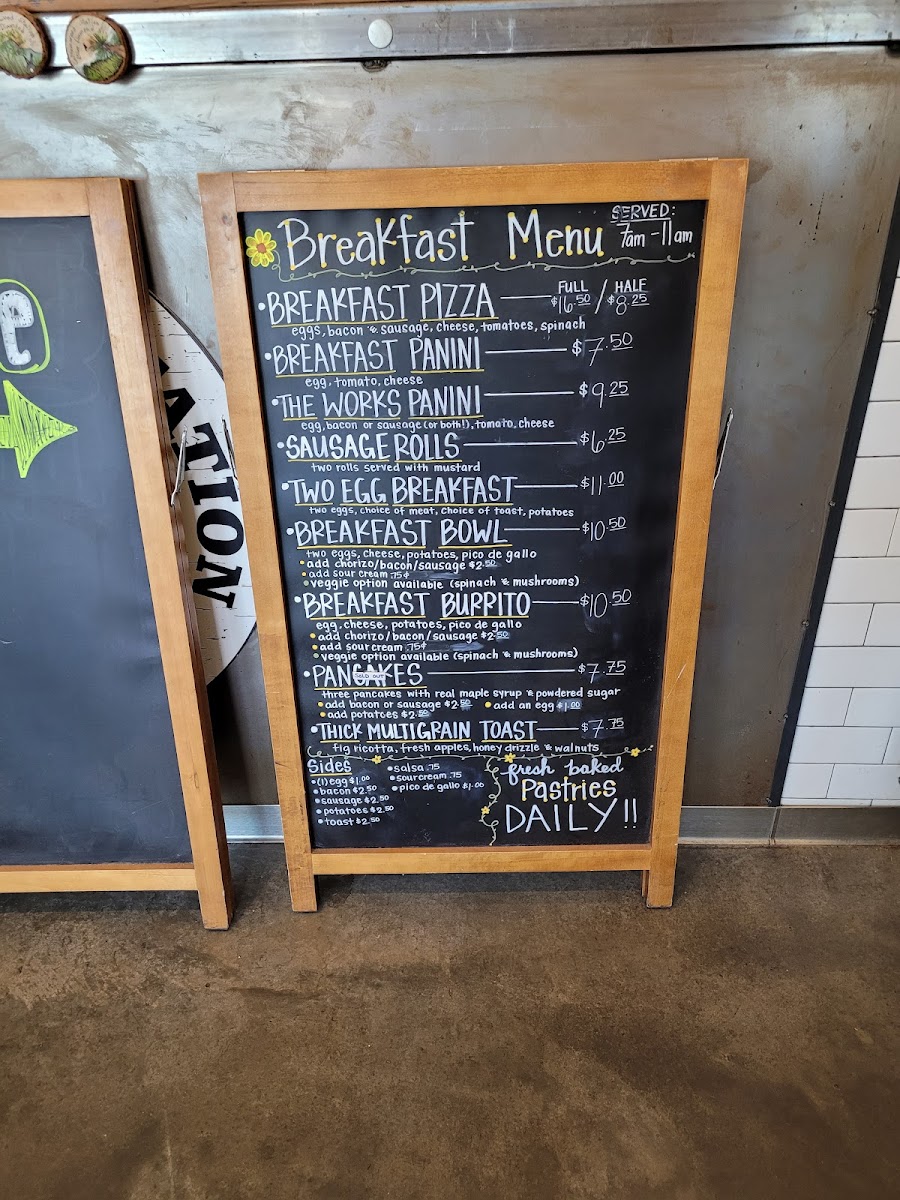 e
ATION
Breakfast Menu
SERVED:
7am - 11am
FULL / HALF
•BREAKFAST PIZZA $16.50 / $8.25
eggs, bacon & sausage, cheese, tomatoes, spinach
•BREAKFAST PANINI $7.50
egg, tomato, cheese
•THE WORKS PANINI $9.25
egg, bacon or sausage (or both!), tomato, cheese
•SAUSAGE ROLLS $6.25
two rolls served with mustard
•TWO EGG BREAKFAST $11.00
two eggs, choice of meat, choice of toast, potatoes
•BREAKFAST BOWL $10.50
two eggs, cheese, potatoes, pico de gallo
• add chorizo/bacon/sausage $2.50
• add sour cream .75¢
• veggie option available (spinach & mushrooms)
•BREAKFAST BURRITO $10.50
egg, cheese, potatoes, pico de gallo
• add chorizo/bacon/sausage $2.50
• add sour cream .75¢
• veggie option available (spinach & mushrooms)
•PANCAKES $7.75
SOLD OUT
three pancakes with real maple syrup & powdered sugar
• add bacon or sausage $2.50 • add an egg $1.00
• add potatoes $2.50
•THICK MULTIGRAIN TOAST $7.75
fig ricotta, fresh apples, honey drizzle & walnuts
Sides
•(1) egg $1.00
•bacon $2.50
•sausage $2.50
•potatoes $2.50
•toast $2.50
•salsa .75
•sour cream .75
•pico de gallo $1.00
fresh baked
Pastries
DAILY!!